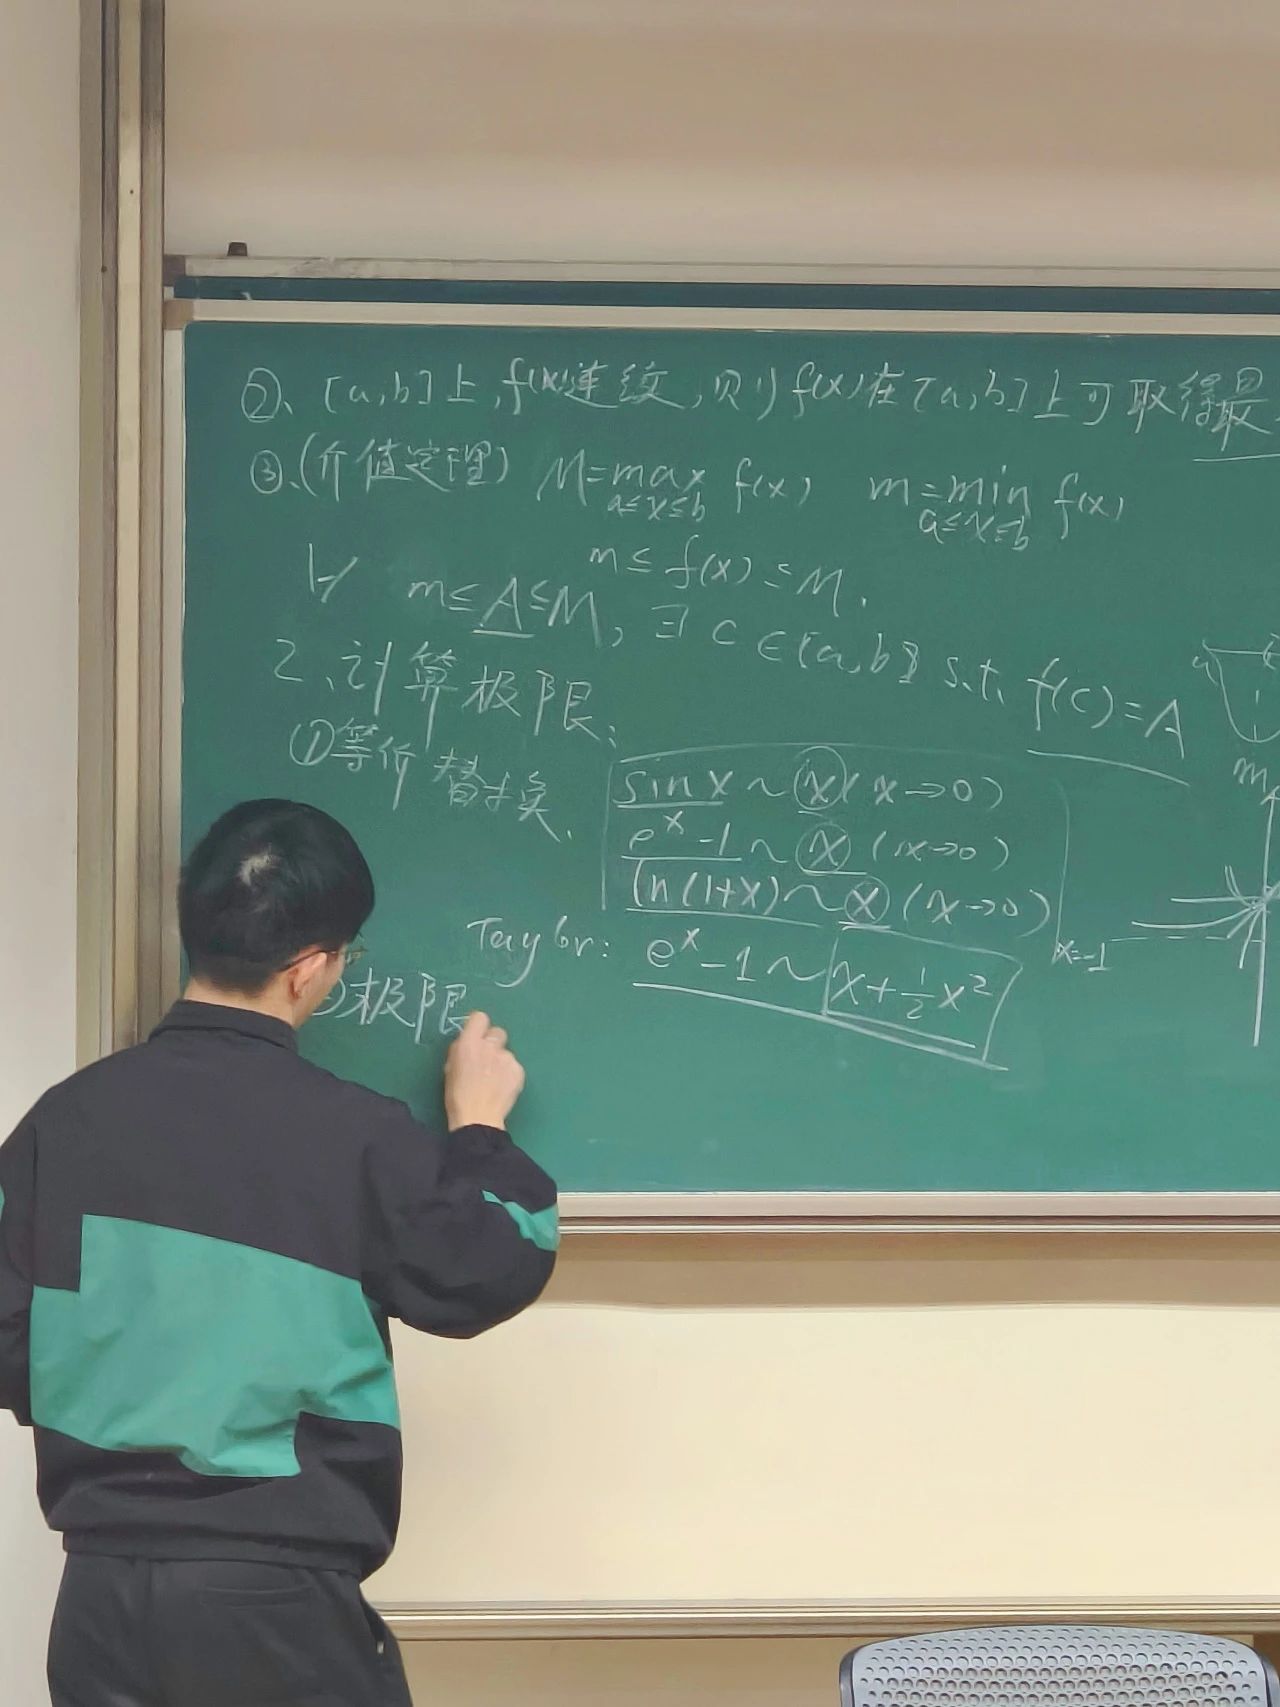 ②、[a,b]上,f(x)连续,则f(x)在[a,b]上可取得最
③、(介值定理) M=max f(x) m=min f(x)
a≤x≤b a≤x≤b
m≤f(x)≤M.
∀ m≤A≤M, ∃ c∈[a,b] s.t. f(c)=A
2、计算极限:
①等价替换.
sinx~x(x→0)
e^x-1~x(x→0)
ln(1+x)~x(x→0)
Taylor: e^x-1~x+½x²
极限
x=-1
m